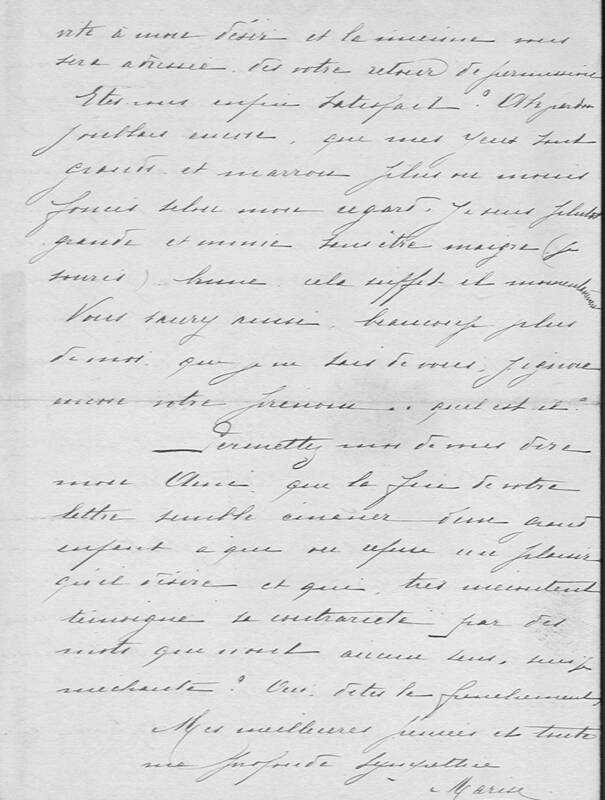 vite à mon désir et la mienne vous
sera adressée dès votre retour de permission
Etes-vous enfin satisfait ? Ah pardon
J'oubliais encore, que mes yeux sont
grands et marron plus ou moins
foncés selon mon regard. Je suis plutôt
grande et mince sans être maigre (je
souris) brune cela suffit-il momentanément
Vous saurez ainsi beaucoup plus
de moi que je ne sais de vous, J'ignore
encore votre prénom .. quel est-il ?
Permettez moi de vous dire
mon Ami que la fin de votre
lettre semble émaner d'un grand
enfant à qui on refuse un plaisir
qu'il désire et qui, très mécontent
témoigne sa contrariété par des
mots qui n'ont aucun sens, suis-je
méchante ? Oui, dites le franchement,
Mes meilleures pensées et toute
ma profonde sympathie
Marise